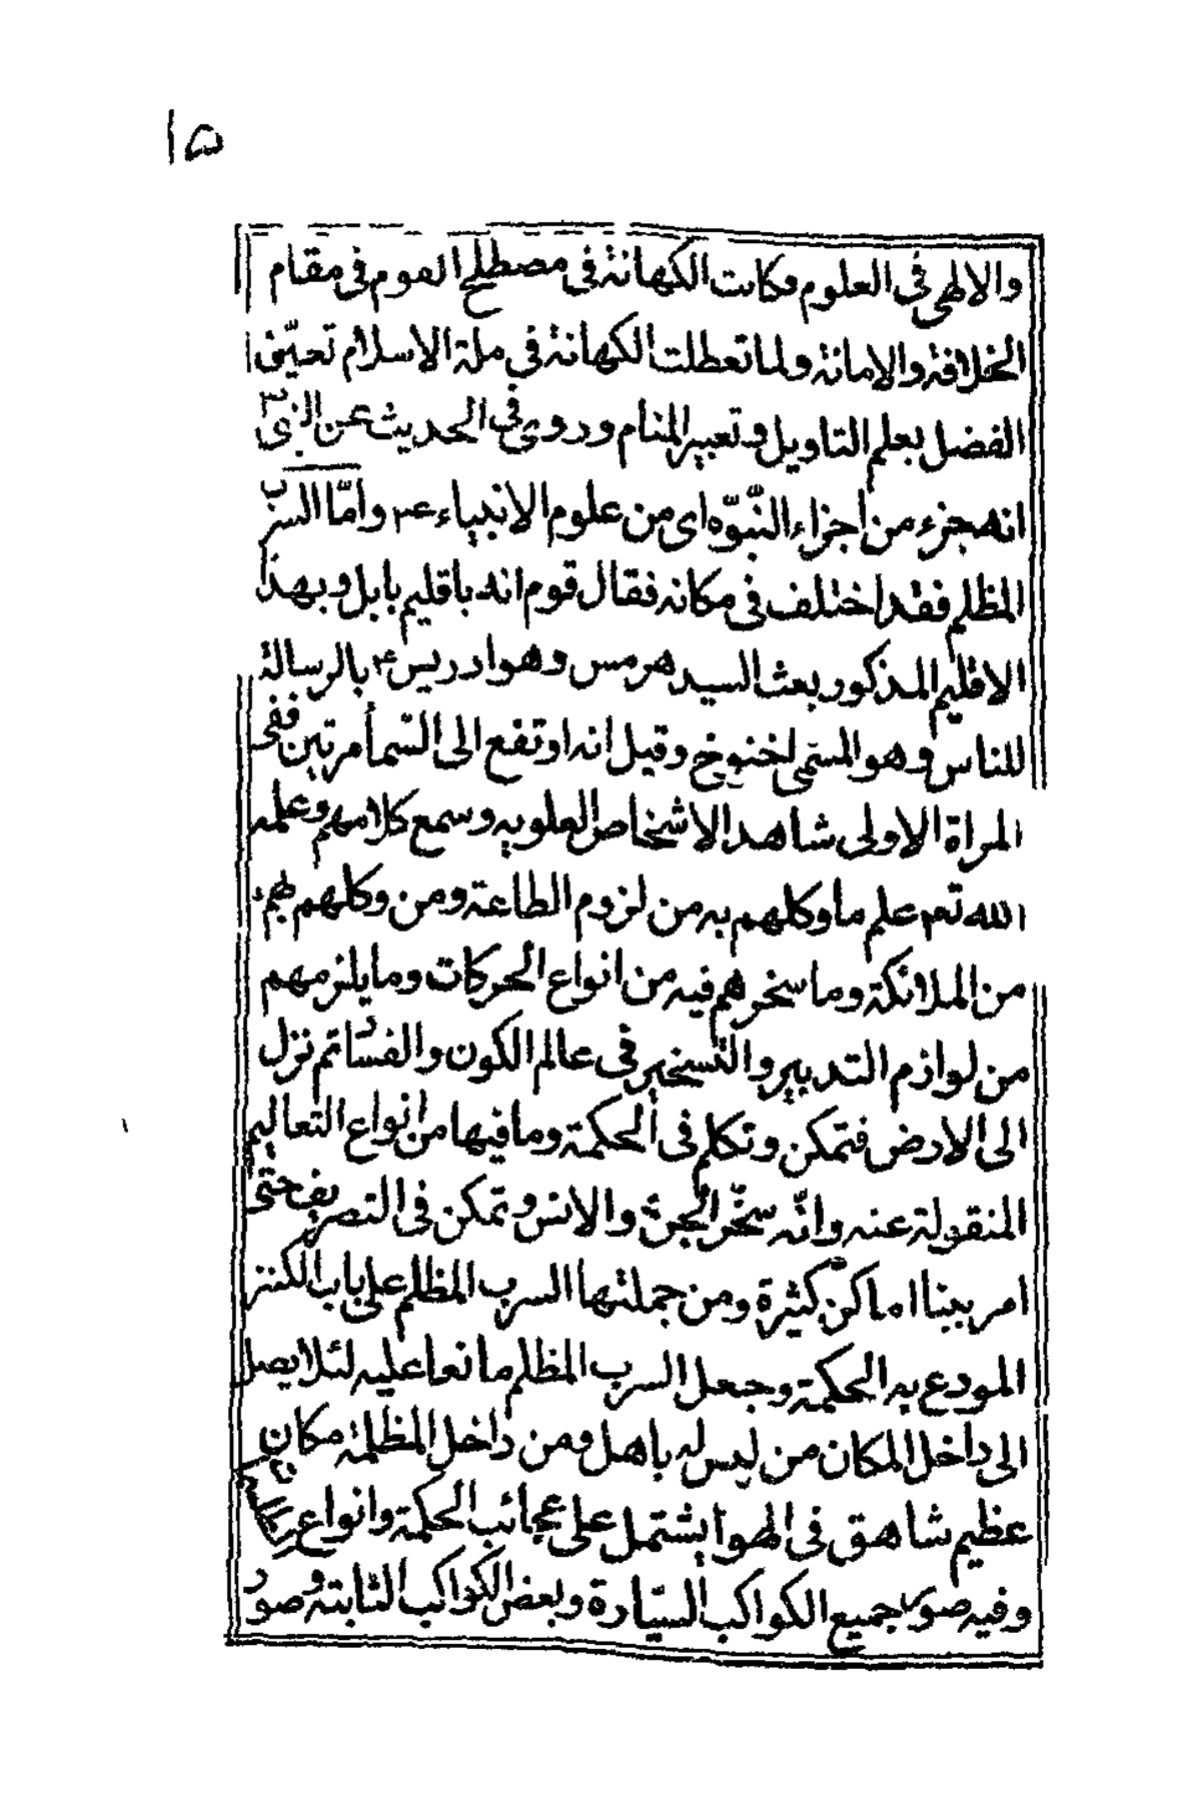 ١٥
والالهى فى العلوم وكانت الكهانة فى مصطلح القوم فى مقام
الخلافة والامانة ولما تعطلت الكهانة فى ملة الاسلام تعيّن
الفضل بعلم التاويل وتعبير المنام وروى فى الحديث عن النبى
انه جزء من اجزاء النّبوّه اى من علوم الانبياء ع٣ وامّا السرب
المظلم فقد اختلف فى مكانه فقال قوم انه باقليم بابل وبهذا
الاقليم المذكور بعث السيد هرمس وهو ادريس ع٣ بالرسالة
للناس وهو المسمى اخنوخ وقيل انه اوتفع الى السّمأ مرتين ففى
المراة الاولى شاهد الاشخاص العلويه وسمع كلامهم وعلمه
الله تعم علم ما وكلهم به من لزوم الطاعة ومن وكلهم بهم
من الملائكة وما سخرهم فيه من انواع الحركات وما يلزمهم
من لوازم التدبير والتسخير فى عالم الكون والفساد ثم نزل
الى الارض فتمكن وتكلم فى الحكمة وما فيها من انواع التعاليم
المنقولة عنه وانّه سخّر الجن والانس وتمكن فى التصريف حتى
امر ببنا اماكن كثيرة ومن جملتها السرب المظلم على باب الكنز
المودع به الحكمة وجعل السرب المظلم مانعا عليه لئلا يصل
الى داخل المكان من ليس له باهل ومن داخل المظلمة مكان
عظيم شاهق فى الهوا يشتمل على عجائب الحكمة وانواع
وفيه صور جميع الكواكب السيّارة وبعض الكواكب الثابتة وصور